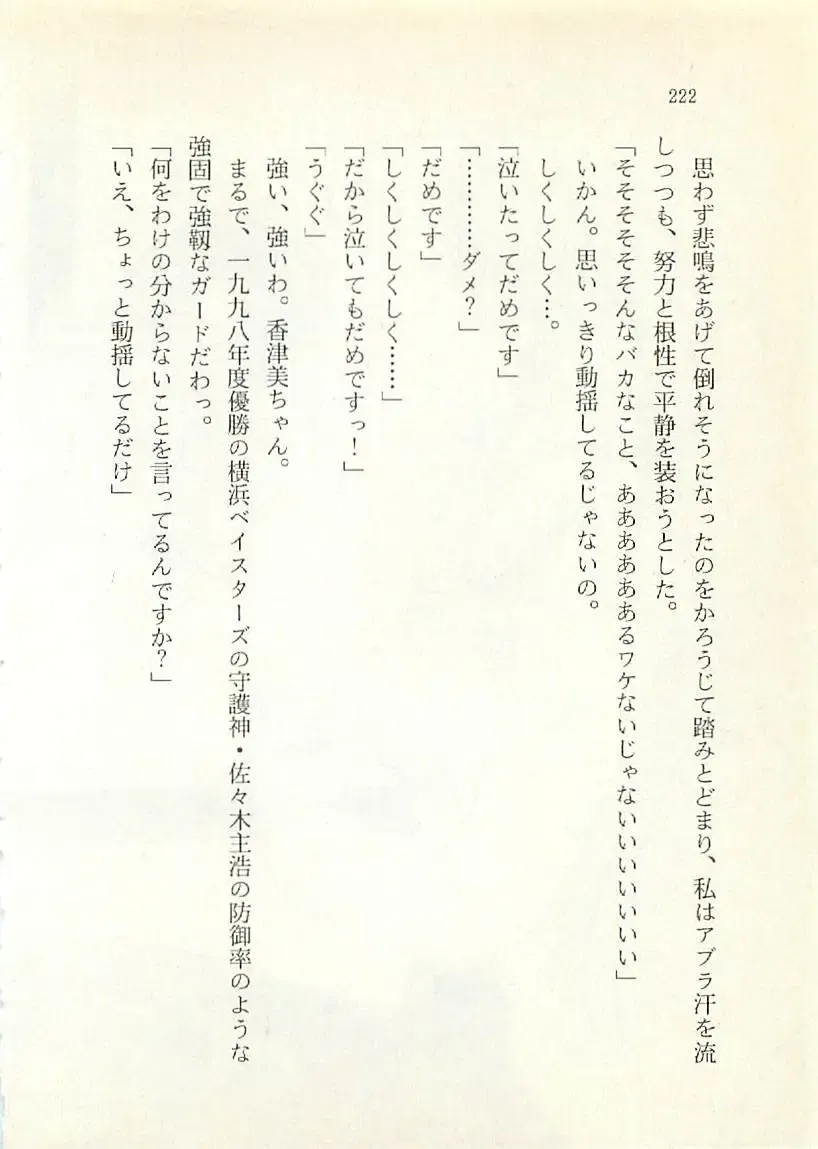 222
思わず悲鳴をあげて倒れそうになったのをかろうじて踏みとどまり、私はアブラ汗を流
しつつも、努力と根性で平静を装おうとした。
「そそそそそそんなバカなこと、ああああああるワケないじゃないいいいいいい」
いかん。思いっきり動揺してるじゃないの。
しくしくしく…。
「泣いたってだめです」
「…………ダメ？」
「だめです」
「しくしくしくしく……」
「だから泣いてもだめですっ！」
「うぐぐ」
強い、強いわ。香津美ちゃん。
まるで、一九九八年度優勝の横浜ベイスターズの守護神・佐々木主浩の防御率のような
強固で強靱なガードだわっ。
「何をわけの分からないことを言ってるんですか？」
「いえ、ちょっと動揺してるだけ」